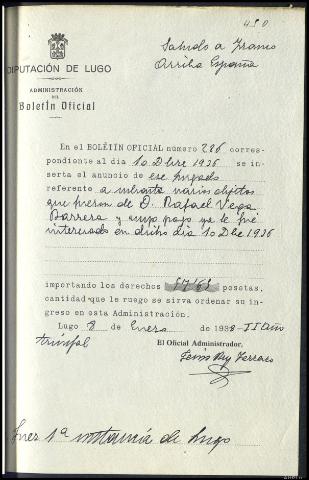 450
Saludo a Franco
Arriba España
DIPUTACIÓN DE LUGO
ADMINISTRACIÓN
DEL
Boletín Oficial
En el BOLETIN OFICIAL número 286 corres-
pondiente al día 10 Dbre 1936 se in-
serta el anuncio de ese juzgado
referente a subasta varios objetos
que fueron de D. Rafael Vega
Barrera y cuyo pago ya le fué
interesado en dicho dia 10 Dbre 1936
importando los derechos 57'65 pesetas,
cantidad que le ruego se sirva ordenar su in-
greso en esta Administración.
Lugo 8 de Enero de 1938 - II Año
triunfal
El Oficial Administrador,
Juez 1ª instancia de Lugo